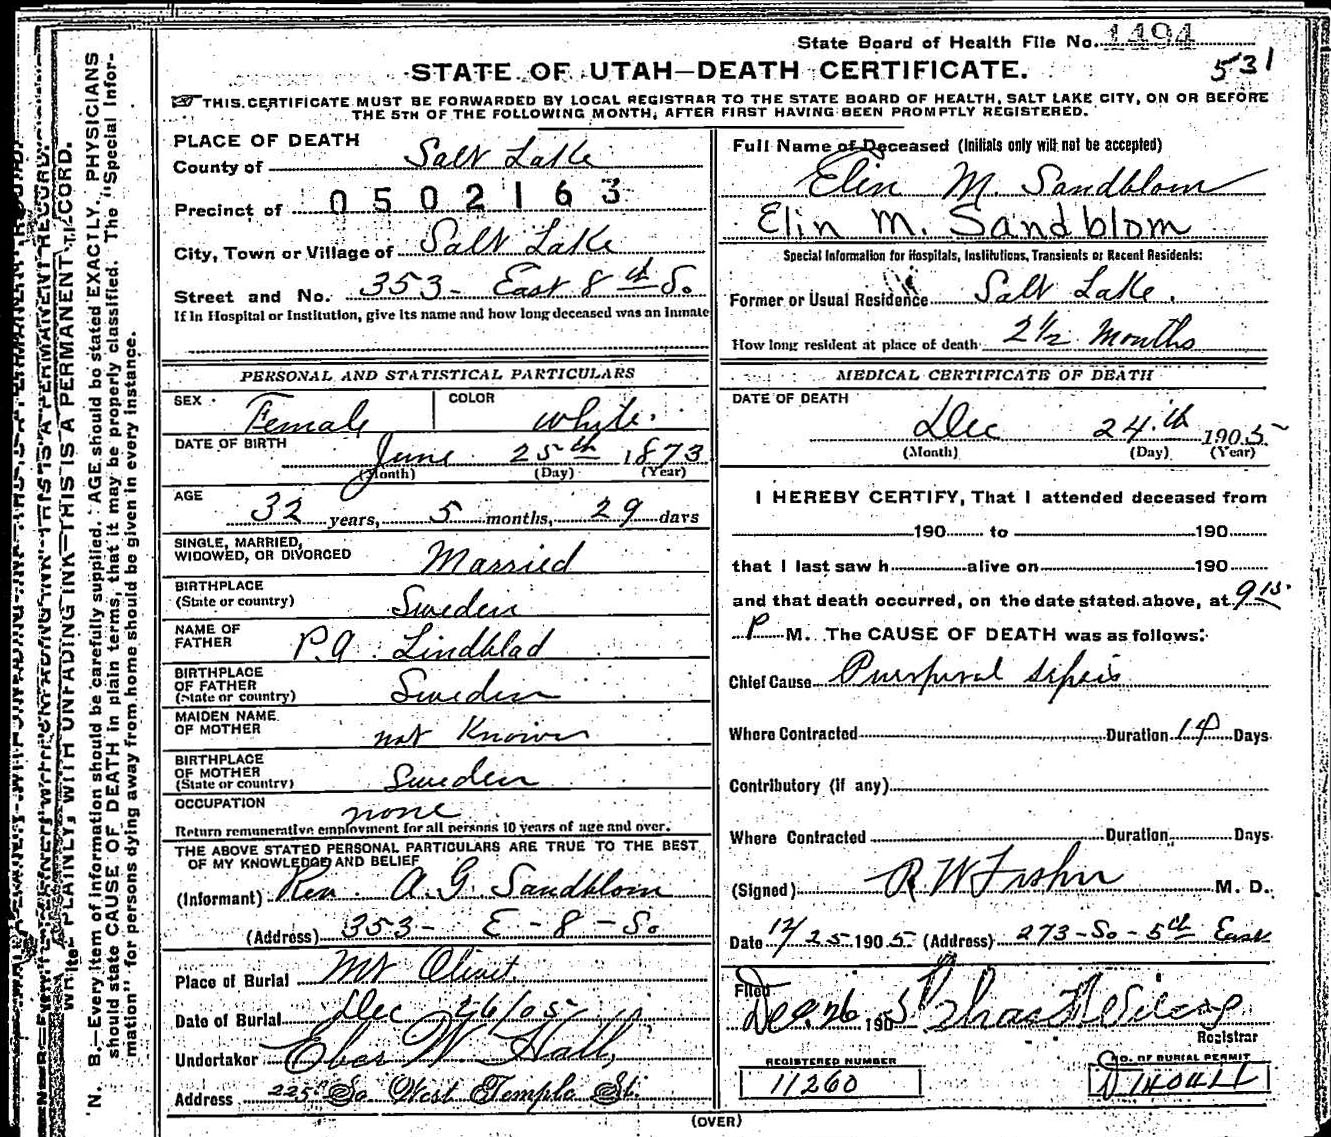 State Board of Health File No. 1494
531
STATE OF UTAH—DEATH CERTIFICATE.
THIS CERTIFICATE MUST BE FORWARDED BY LOCAL REGISTRAR TO THE STATE BOARD OF HEALTH, SALT LAKE CITY, ON OR BEFORE
THE 5TH OF THE FOLLOWING MONTH, AFTER FIRST HAVING BEEN PROMPTLY REGISTERED.
PLACE OF DEATH
County of Salt Lake
Precinct of 0502163
City, Town or Village of Salt Lake
Street and No. 353- East 8th So
If in Hospital or Institution, give its name and how long deceased was an Inmate
Full Name of Deceased (Initials only will not be accepted)
Elin M. Sandblom
Elin M. Sandblom
Special Information for Hospitals, Institutions, Transients or Recent Residents:
Former or Usual Residence Salt Lake.
How long resident at place of death 2½ Months
PERSONAL AND STATISTICAL PARTICULARS
SEX Female COLOR White.
DATE OF BIRTH
June 25th 1873
(Month) (Day) (Year)
AGE
32 years, 5 months, 29 days
SINGLE, MARRIED,
WIDOWED, OR DIVORCED Married
BIRTHPLACE
(State or country) Sweden
NAME OF
FATHER P.A. Lindblad
BIRTHPLACE
OF FATHER
(State or country) Sweden
MAIDEN NAME
OF MOTHER not Known
BIRTHPLACE
OF MOTHER
(State or country) Sweden
OCCUPATION none
Return remunerative employment for all persons 10 years of age and over.
THE ABOVE STATED PERSONAL PARTICULARS ARE TRUE TO THE BEST
OF MY KNOWLEDGE AND BELIEF
(Informant) Rev. A. G. Sandblom
(Address) 353- E-8-So
Place of Burial Mt Olivet
Date of Burial Dec 26/05
Undertaker Eber W Hall,
Address 225 So West Temple St.
MEDICAL CERTIFICATE OF DEATH
DATE OF DEATH
Dec 24th 1905
(Month) (Day) (Year)
I HEREBY CERTIFY, That I attended deceased from
190 to 190
that I last saw h alive on 190
and that death occurred, on the date stated above, at 9 15
P M. The CAUSE OF DEATH was as follows:
Chief Cause Puerperal sepsis
Where Contracted Duration 14 Days
Contributory (if any)
Where Contracted Duration Days
(Signed) R W M. D.
Date 12/25 1905 (Address) 273-So-5th East
Filed
Dec. 26 1905
Registrar
REGISTERED NUMBER
11260
NO. OF BURIAL PERMIT
(OVER)
N. B.—Every item of information should be carefully supplied. AGE should be stated EXACTLY. PHYSICIANS
should state CAUSE OF DEATH in plain terms, that it may be properly classified. The "Special Infor-
mation" for persons dying away from home should be given in every instance.
WRITE PLAINLY, WITH UNFADING INK—THIS IS A PERMANENT RECORD.